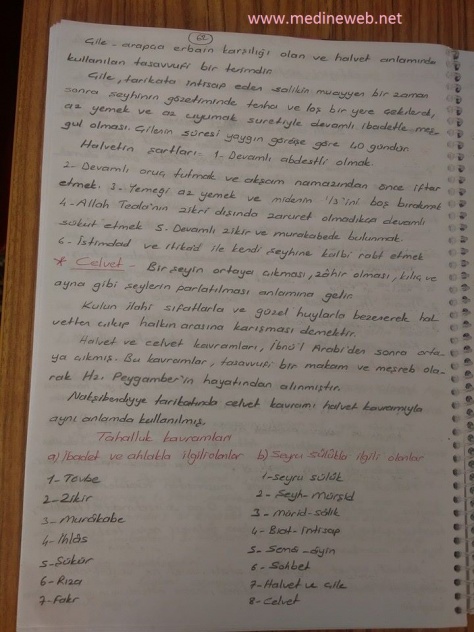 www.medineweb.net
62
Çile - arapça erbain karşılığı olan ve halvet anlamında
kullanılan tasavvufi bir terimdir.
Çile, tarikata intisap eden salikin muayyen bir zaman
sonra şeyhinin gözetiminde tenha ve loş bir yere çekilerek,
az yemek ve az uyumak suretiyle devamlı ibadetle meş
gul olması. Çilenin süresi yaygın görüşe göre 40 gündür.
Halvetin şartları: 1- Devamlı abdestli olmak.
2- Devamlı oruç tutmak ve akşam namazından önce iftar
etmek. 3- Yemeği az yemek ve midenin 1/3'ini boş bırakmak
4- Allah Teala'nın zikri dışında zaruret olmadıkça devamlı
sükût etmek 5. Devamlı zikir ve murakabede bulunmak.
6- İstimdad ve itikad ile kendi şeyhine kalbi rabt etmek
* Celvet - Bir şeyin ortaya çıkması, zâhir olması, kılıç ve
ayna gibi şeylerin parlatılması anlamına gelir.
Kulun ilahi sıfatlarla ve güzel huylarla bezenerek hal
vetten çıkıp halkın arasına karışması demektir.
Halvet ve celvet kavramları, İbnü'l Arabi'den sonra orta-
ya çıkmış. Bu kavramlar, tasavvufi bir makam ve meşreb ola-
rak Hz. Peygamber'in hayatından alınmıştır.
Nakşibendiyye tarikatında celvet kavramı halvet kavramıyla
aynı anlamda kullanılmış.
Tahalluk kavramları
a) İbadet ve ahlakla ilgili olanlar b) Seyru sülûkla ilgili olanlar
1- Tevbe 1- seyru sülûk
2- Zikir 2- Şeyh - Mürşid
3- Murâkabe 3- Mürid - sâlik
4- İhlâs 4- Biat - intisap
5- Şükür 5- Semâ - âyin
6- Rıza 6- Sohbet
7- Fakr 7- Halvet ve çile
8- Celvet